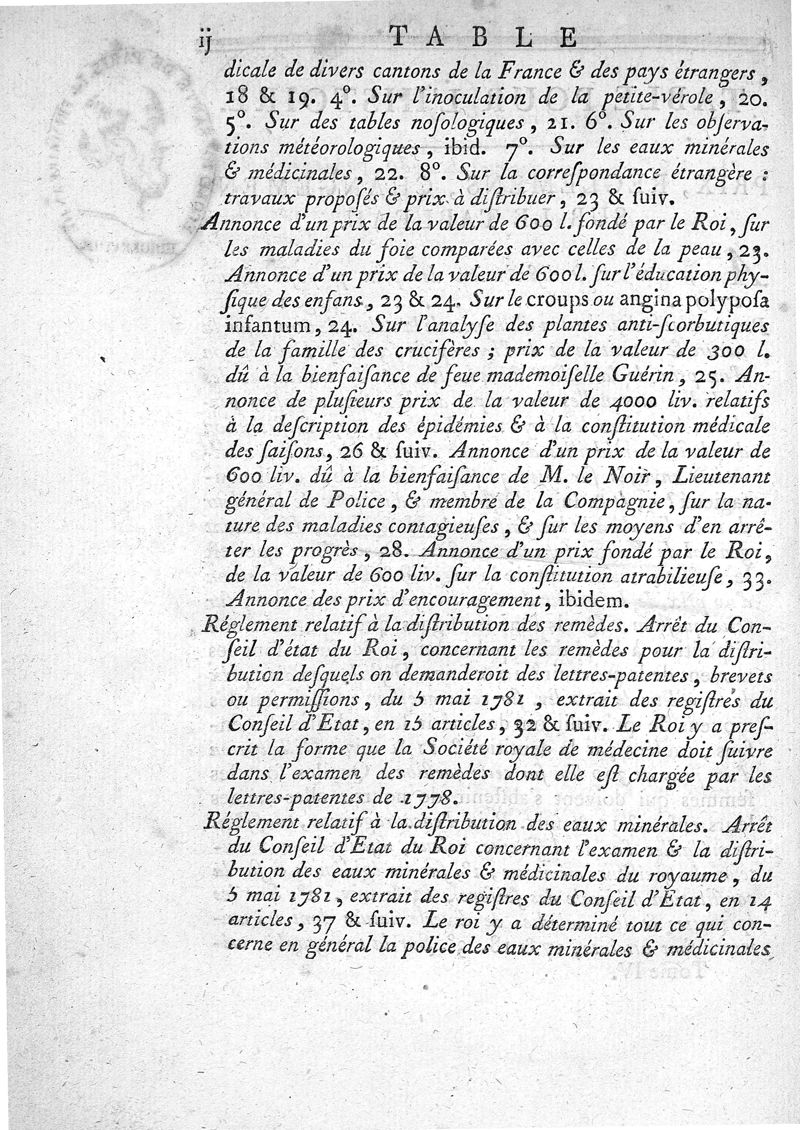 ij TABLE
dicale de divers cantons de la France & des pays étrangers,
18 & 19. 4°. Sur l'inoculation de la petite-vérole, 20.
5°. Sur des tables noſologiques, 21. 6°. Sur les obſerva-
tions météorologiques, ibid. 7°. Sur les eaux minérales
& médicinales, 22. 8°. Sur la correſpondance étrangère :
travaux propoſés & prix à diſtribuer, 23 & ſuiv.
Annonce d'un prix de la valeur de 600 l. fondé par le Roi, ſur
les maladies du foie comparées avec celles de la peau, 23.
Annonce d'un prix de la valeur de 600 l. ſur l'éducation phy-
ſique des enfans, 23 & 24. Sur le croups ou angina polypoſa
infantum, 24. Sur l'analyſe des plantes anti-ſcorbutiques
de la famille des crucifères ; prix de la valeur de 300 l.
dû à la bienfaiſance de feue mademoiſelle Guérin, 25. An-
nonce de pluſieurs prix de la valeur de 4000 liv. relatifs
à la deſcription des épidémies & à la conſtitution médicale
des ſaiſons, 26 & ſuiv. Annonce d'un prix de la valeur de
600 liv. dû à la bienfaiſance de M. le Noir, Lieutenant
général de Police, & membre de la Compagnie, ſur la na-
ture des maladies contagieuſes, & ſur les moyens d'en arrê-
ter les progrès, 28. Annonce d'un prix fondé par le Roi,
de la valeur de 600 liv. ſur la conſtitution atrabilieuſe, 33.
Annonce des prix d'encouragement, ibidem.
Réglement relatif à la diſtribution des remèdes. Arrêt du Con-
ſeil d'état du Roi, concernant les remèdes pour la diſtri-
bution deſquels on demanderoit des lettres-patentes, brevets
ou permiſſions, du 5 mai 1781, extrait des regiſtres du
Conſeil d'Etat, en 15 articles, 32 & ſuiv. Le Roi y a preſ-
crit la forme que la Société royale de médecine doit ſuivre
dans l'examen des remèdes dont elle eſt chargée par les
lettres-patentes de 1778.
Réglement relatif à la diſtribution des eaux minérales. Arrêt
du Conſeil d'Etat du Roi concernant l'examen & la diſtri-
bution des eaux minérales & médicinales du royaume, du
5 mai 1781, extrait des regiſtres du Conſeil d'Etat, en 14
articles, 37 & ſuiv. Le roi y a déterminé tout ce qui con-
cerne en général la police des eaux minérales & médicinales